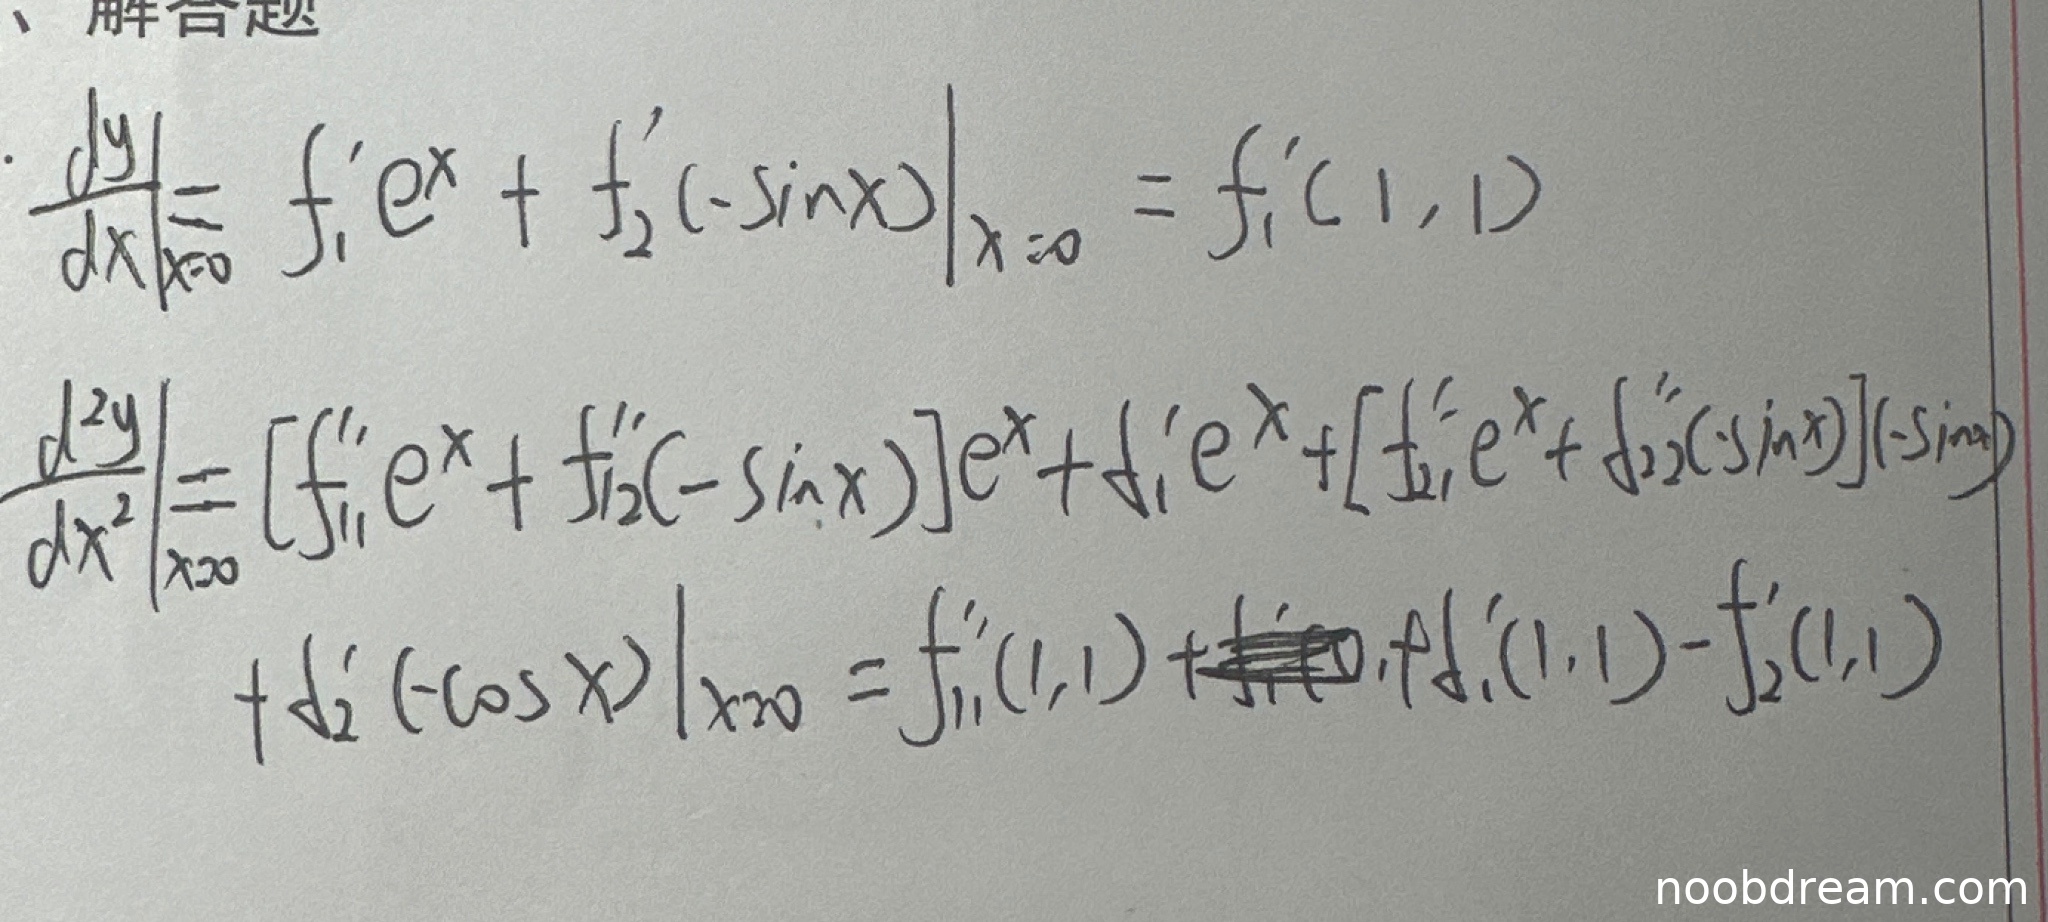 、解答题
. dy/dx|x=0 = f₁′eˣ + f₂′(-sinx)|x=0 = f₁′(1,1)
d²y/dx²|x=0 = [f₁₁″eˣ + f₁₂″(-sinx)]eˣ + f₁′eˣ + [f₂₁″eˣ + f₂₂″(-sinx)](-sinx)
+ f₂′(-cosx)|x=0 = f₁₁″(1,1) + + f₁′(1,1) - f₂′(1,1)
noobdream.com